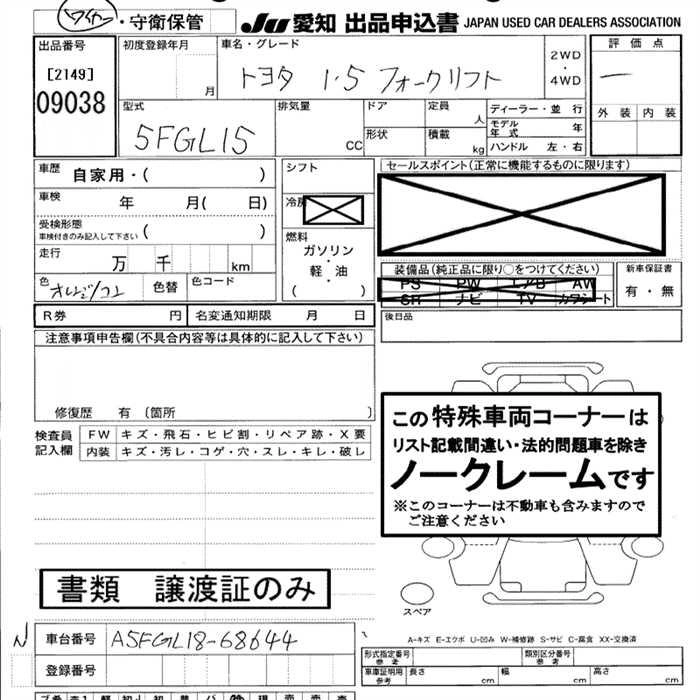 ワイカー・守衛保管
JU 愛知 出品申込書 JAPAN USED CAR DEALERS ASSOCIATION
出品番号
[2149]
09038
初度登録年月
月
車名・グレード
トヨタ 1.5 フォークリフト
2WD
・
4WD
評価点
一
外装 内装
型式
5FGL15
排気量
CC
ドア
形状
定員
人
積載
kg
ディーラー・並 行
モデル年式 年
ハンドル 左・右
車歴 自家用・( )
車検 年 月( 日)
受検形態
車検付きのみ記入して下さい ( )
走行 万 千 km
色
オレンジ/コン
色替
色コード
シフト
冷房
燃料
ガソリン
・
軽・油
( )
セールスポイント(正常に機能するものに限ります)
装備品(純正品に限り○をつけてください)
PS PW エアB AW
SR ナビ TV カワシート
新車保証書
有・無
R券 円
名変通知期限 月 日
後日品
注意事項申告欄(不具合内容等は具体的に記入して下さい)
修復歴 有 〔箇所 〕
検査員
記入欄
FW キズ・飛石・ヒビ割・リペア跡・X要
内装 キズ・汚レ・コゲ・穴・スレ・キレ・破レ
この特殊車両コーナーは
リスト記載間違い・法的問題車を除き
ノークレームです
※このコーナーは不動車も含みますので
ご注意ください
書類 譲渡証のみ
スペア
A-キズ E-エクボ U-凹み W-補修跡 S-サビ C-腐食 XX-交換済
N
車台番号 A5FGL18-68644
登録番号
形式指定番号
参考
類別区分番号
参考
車庫証明用
参考
長さ cm 幅 cm 高さ cm